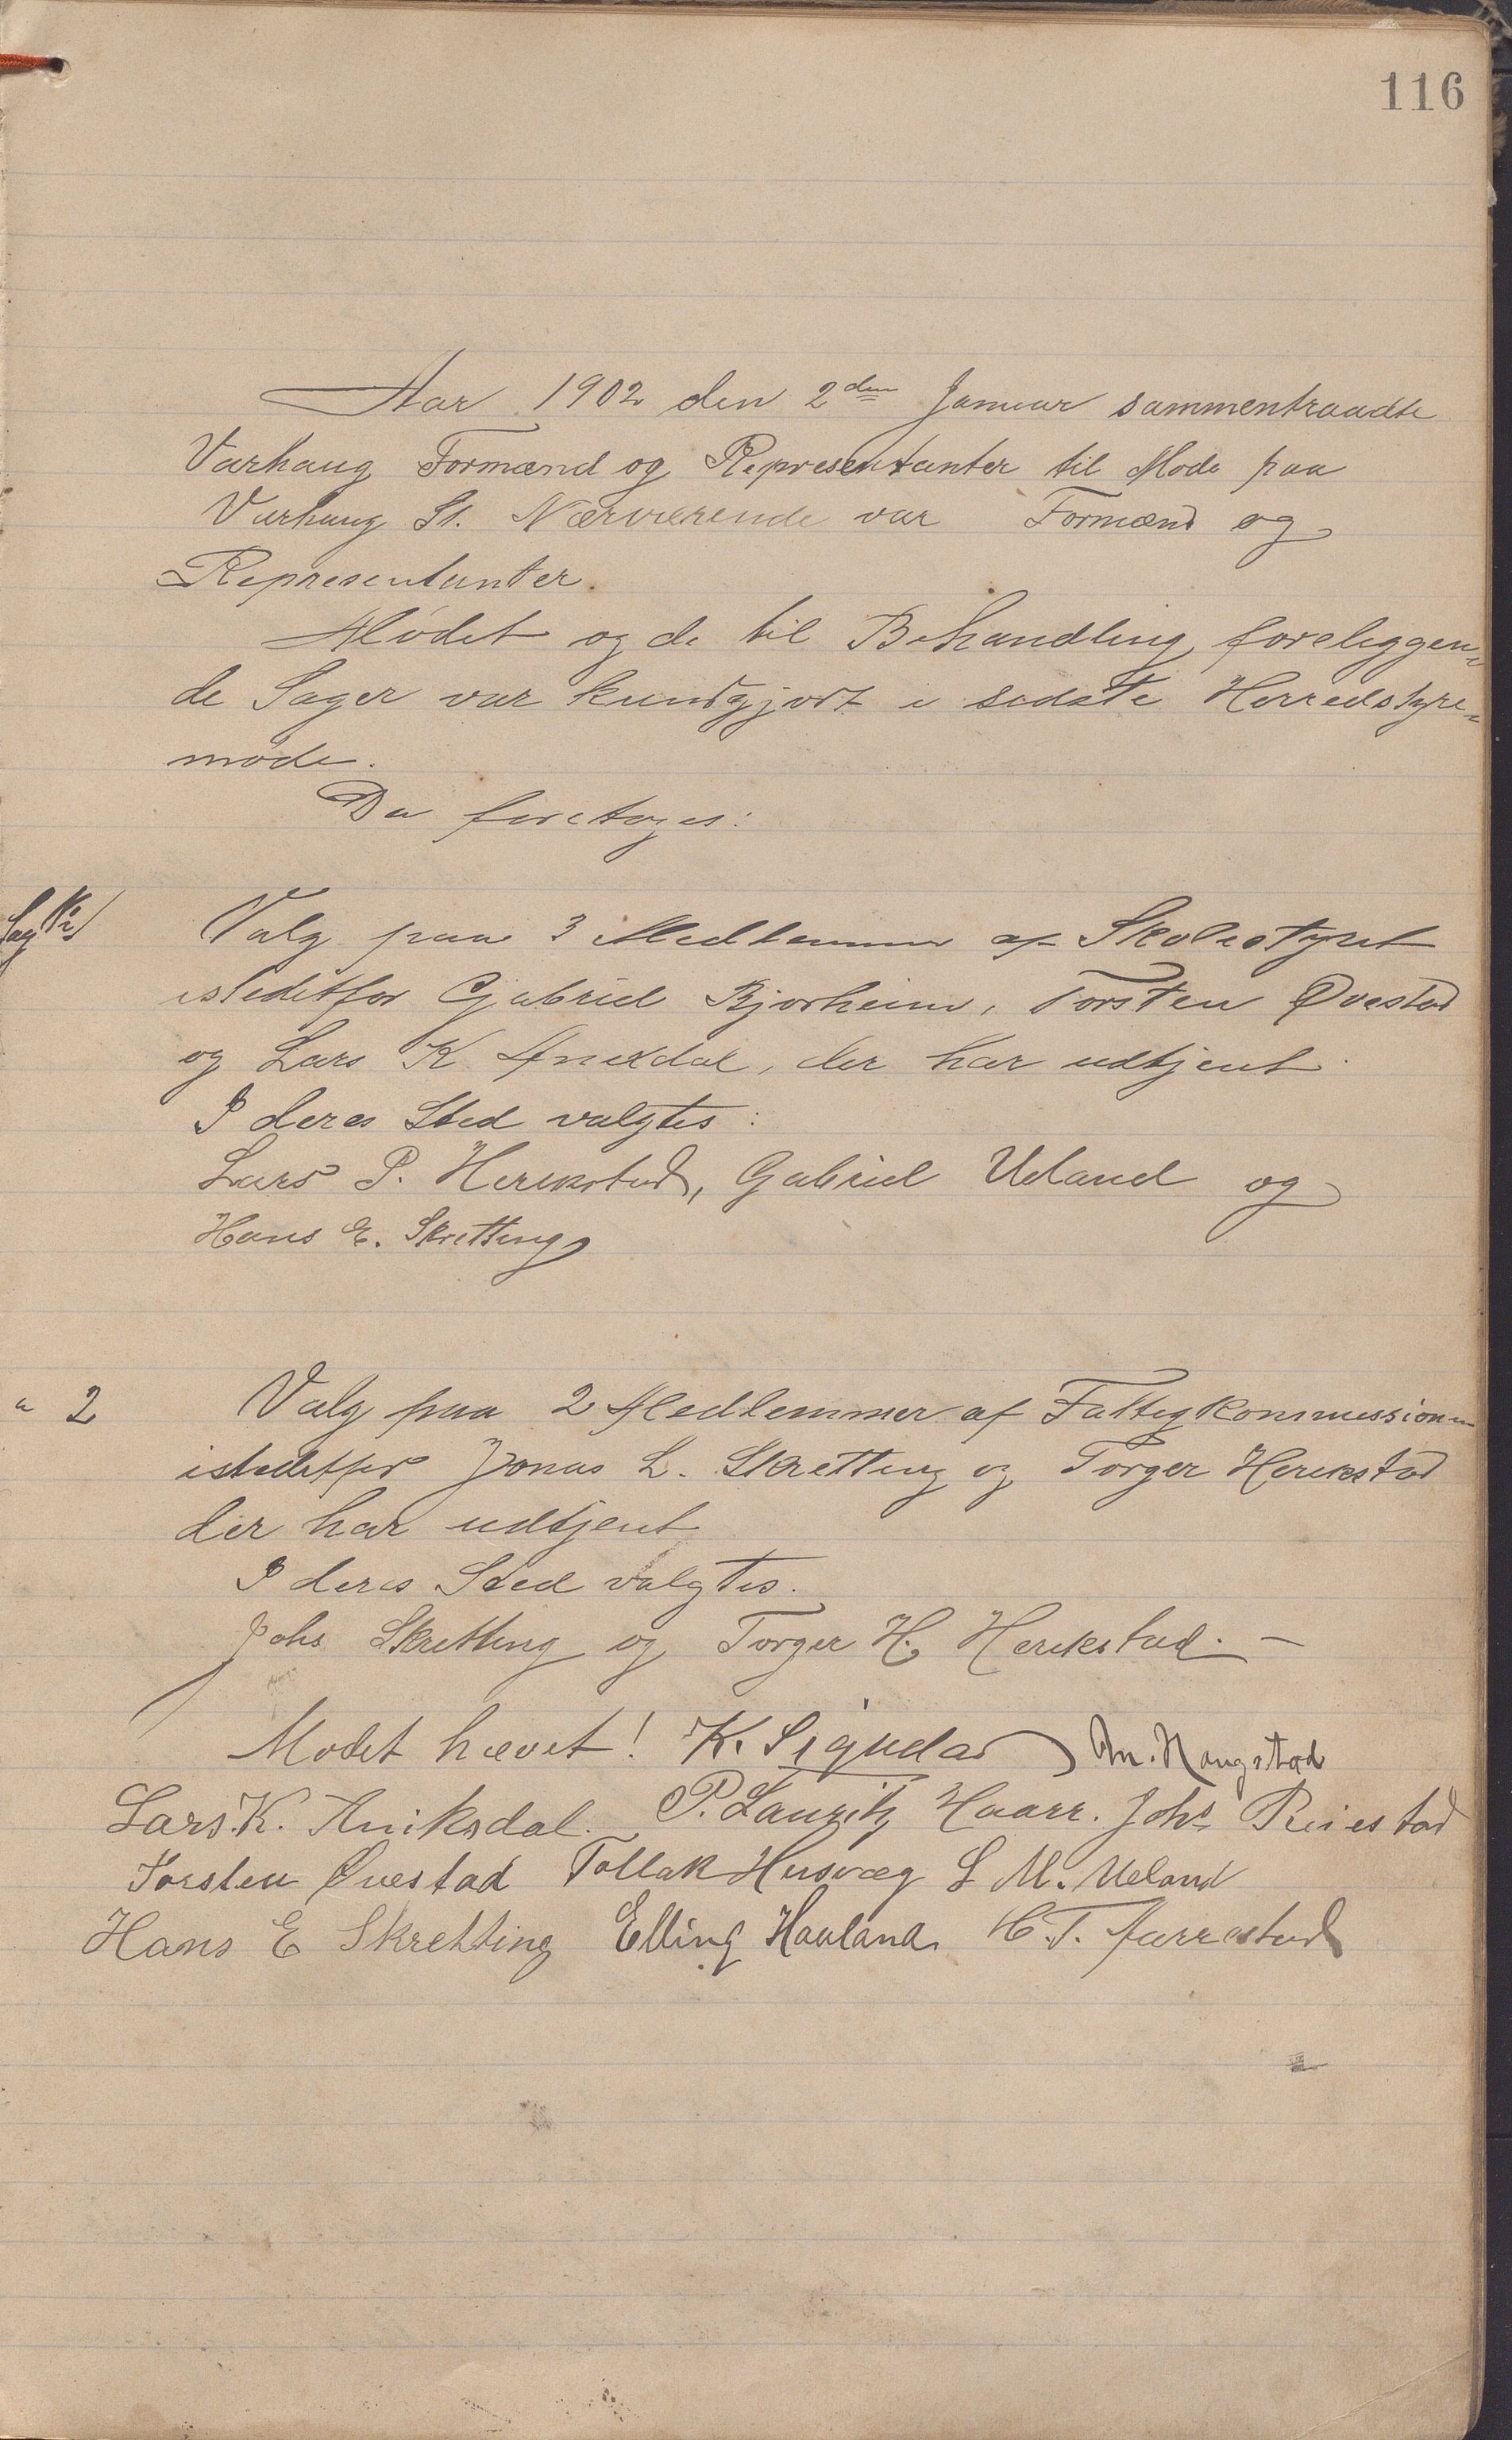 116
Aar 1902 den 2den Januar sammentraadte
Varhaug Formænd og Representanter til Møde paa
Varhaug St. Nærværende var Formænd og
Representanter.
Mødet og de til Behandling foreliggen-
de Sager var kundgjort i sidste Herredstyre-
møde.
Da foretoges:
Sag No 1 Valg paa 3 Medlemmer af Skolestyret
istedetfor Gabriel Bjorheim, Torsten Øvestad
og Lars K Anikdal, der har udtjent.
I deres Sted valgtes:
Lars P. Herikstad, Gabriel Ueland og
Hans E. Skretting
" 2 Valg paa 2 Medlemmer af Fattigkommissionen
istedetfor Jonas L. Skretting og Torger Herikstad
der har udtjent
I deres Sted valgtes.
Johs Skretting og Torger H. Herikstad. —
Mødet hævet! K. Sigvda M. Haugstad
Lars. K. Aniksdal. P. Lauritz Haarr. Johs Reiestad
Torsten Øvestad Tollak Husvæg L M. Ueland
Hans E Skretting Elling Haaland. H. T. Aarrestad